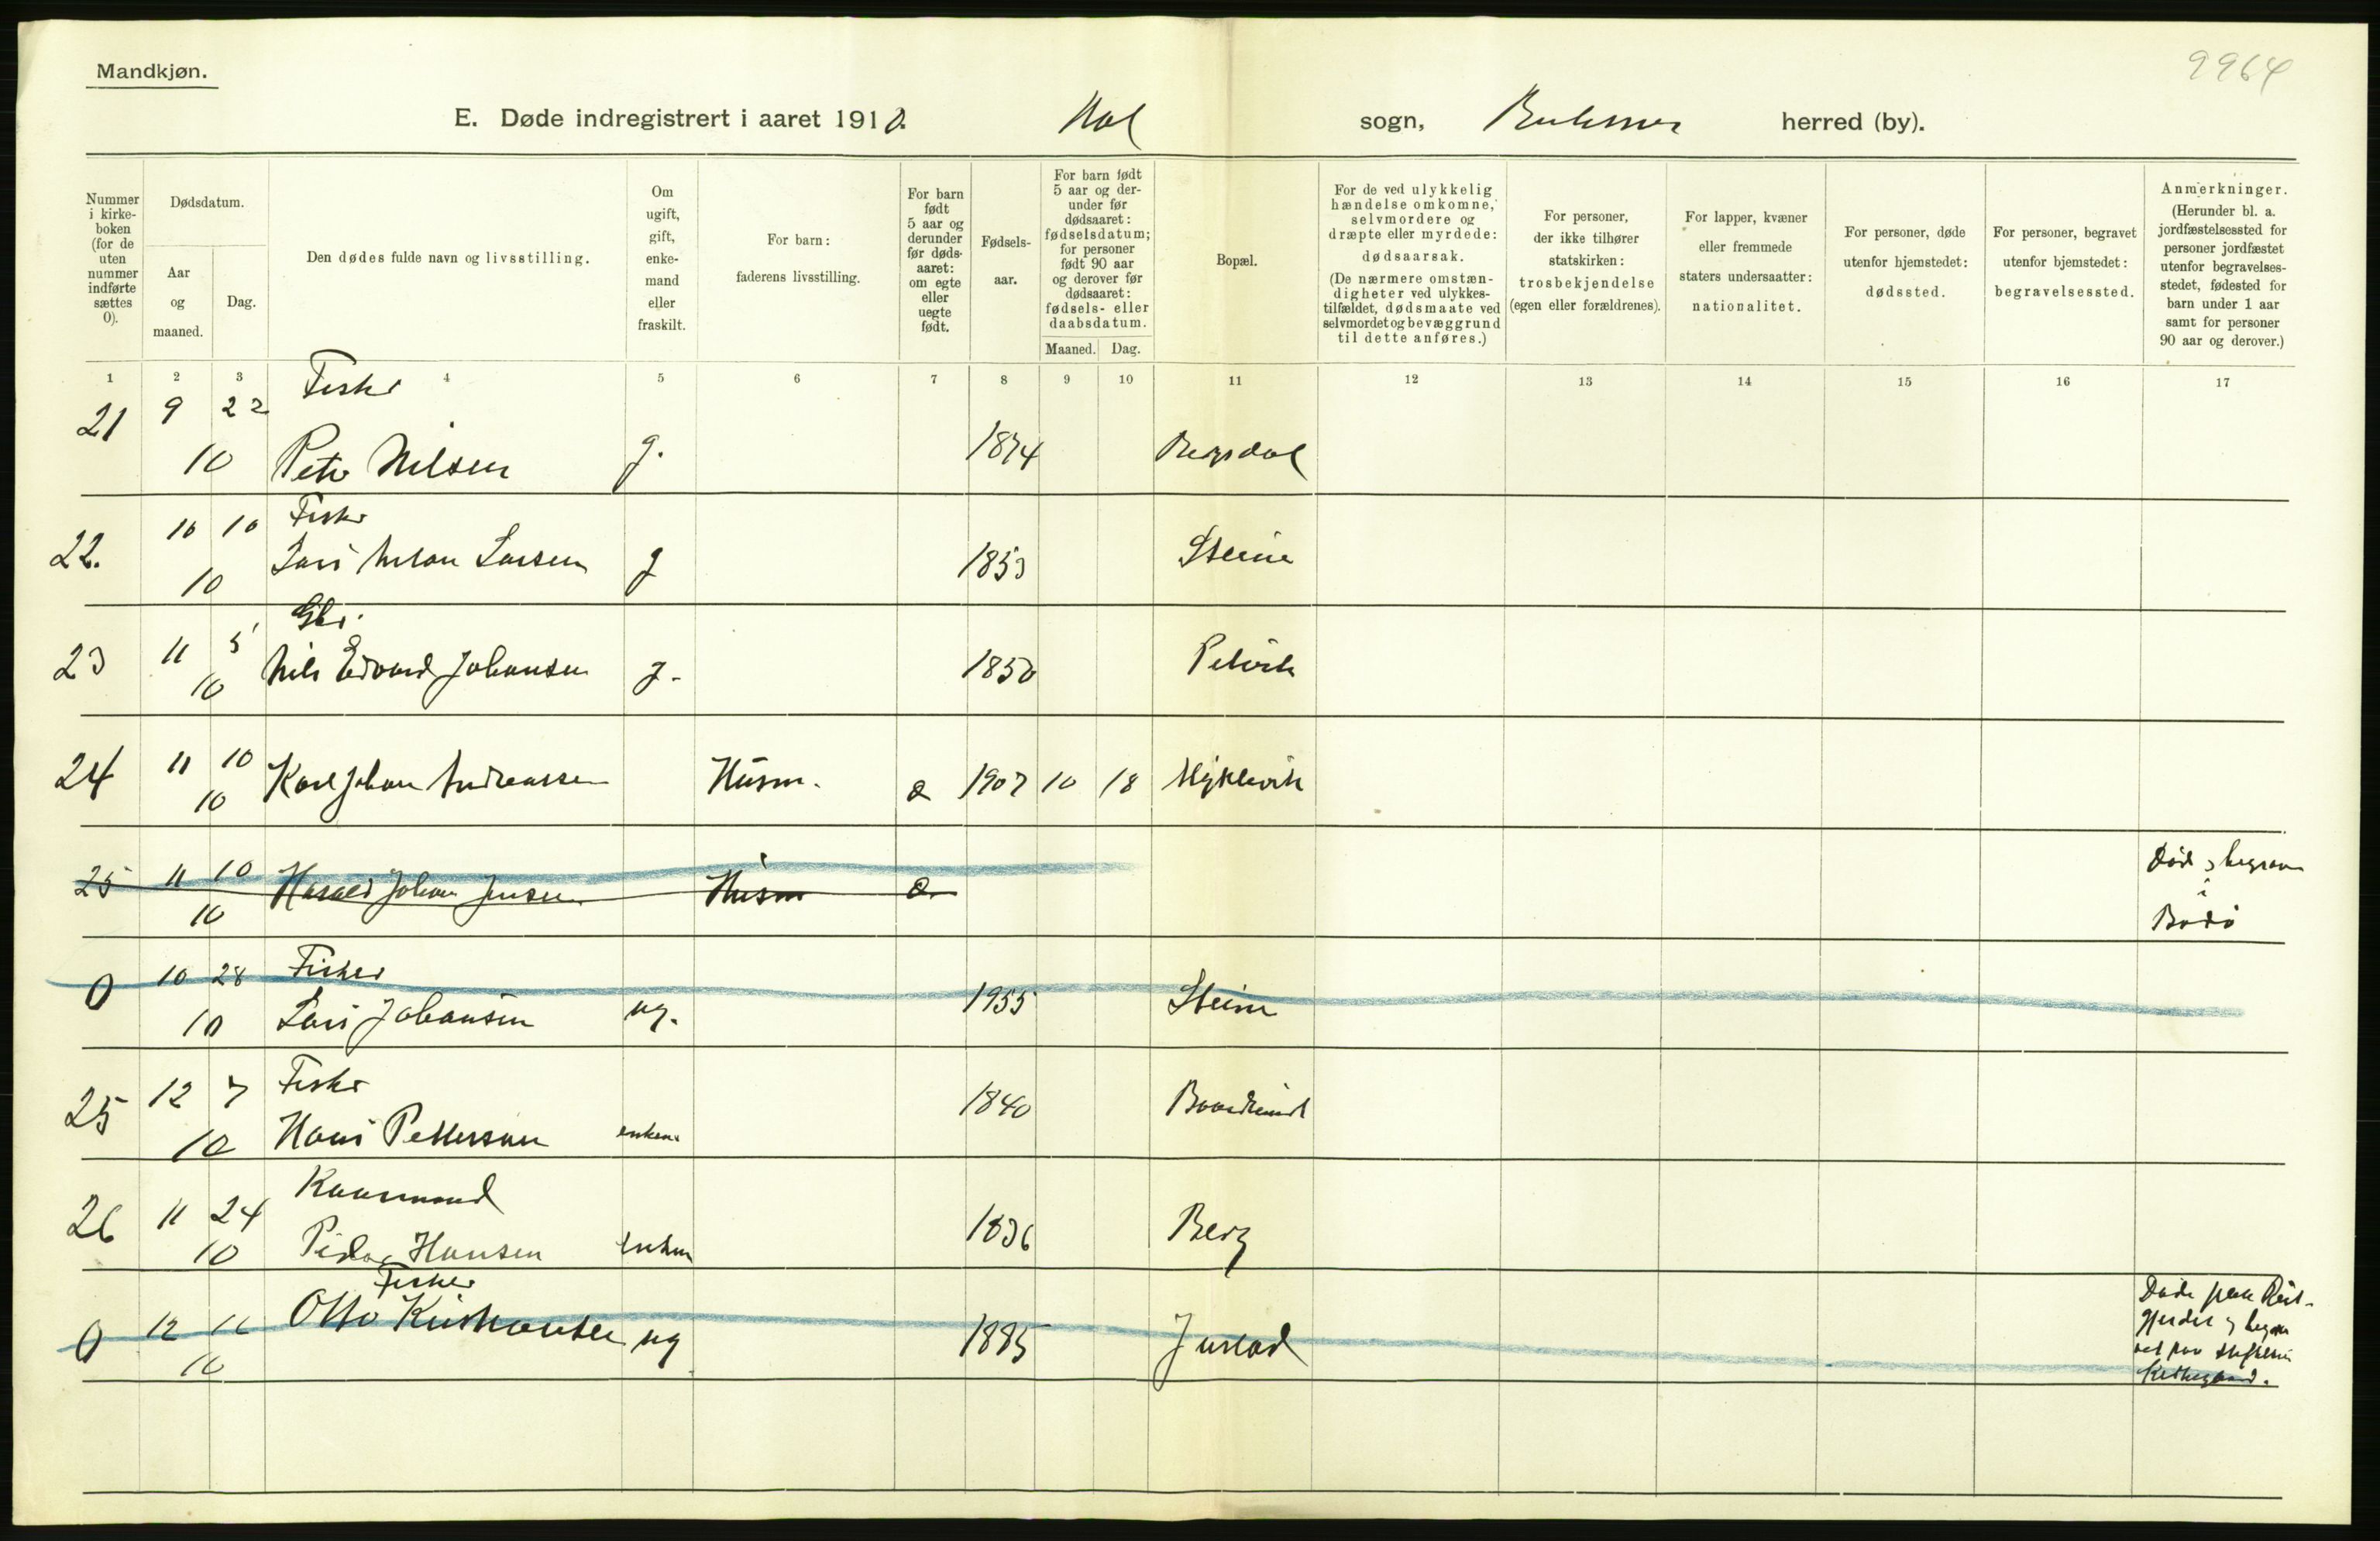 Mandkjøn.
9964
E. Døde indregistrert i aaret 1910. Hol sogn, Buksnes herred (by).
Nummer i kirke-boken (for de uten nummer indførte sættes 0).
Dødsdatum.
Aar og maaned.
Dag.
Den dødes fulde navn og livsstilling.
Om ugift, gift, enke-mand eller fraskilt.
For barn: faderens livsstilling.
For barn født 5 aar og derunder før døds-aaret: om egte eller uegte født.
Fødsels-aar.
For barn født 5 aar og der-under før dødsaaret: fødselsdatum; for personer født 90 aar og derover før dødsaaret: fødsels- eller daabsdatum.
Maaned. Dag.
Bopæl.
For de ved ulykkelig hændelse omkomne, selvmordere og dræpte eller myrdede: dødsaarsak. (De nærmere omstæn-digheter ved ulykkes-tilfældet, dødsmaate ved selvmordet og bevæggrund til dette anføres.)
For personer, der ikke tilhører statskirken: trosbekjendelse (egen eller forældrenes).
For lapper, kvæner eller fremmede staters undersaatter: nationalitet.
For personer, døde utenfor hjemstedet: dødssted.
For personer, begravet utenfor bjemstedet: begravelsessted.
Anmerkninger. (Herunder bl. a. jordfæstelsessted for personer jordfæstet utenfor begravelses-stedet, fødested for barn under 1 aar samt for personer 90 aar og derover.)
1 2 3 4 5 6 7 8 9 10 11 12 13 14 15 16 17
Fisker
21 9 22
10 Peter Nilsen g. 1874
22. 10 10 Fisker
10 Lars Larsen g 1853 Steine
23 11 5
10 Nils Edvard Johansen g. 1850 Petvik
24 11 10 Karl Johan Andreassen Husm. 1907 10 18
10
25 11 10 Harald Johan Jensen Husm
10
Død og begravet
i
Bodø
0 10 28 Fisker
10 Lars Johansen ug. 1955 Steine
25 12 7 Fisker 1840
10 Hans Pettersen enkem.
26 11 24 Kaarmand
10 Peder Hansen enkem 1836 Berg
Fisker
0 12 11 Otto Kristiansen ug 1885 Justad
10
Døde paa
Kirkegaard.